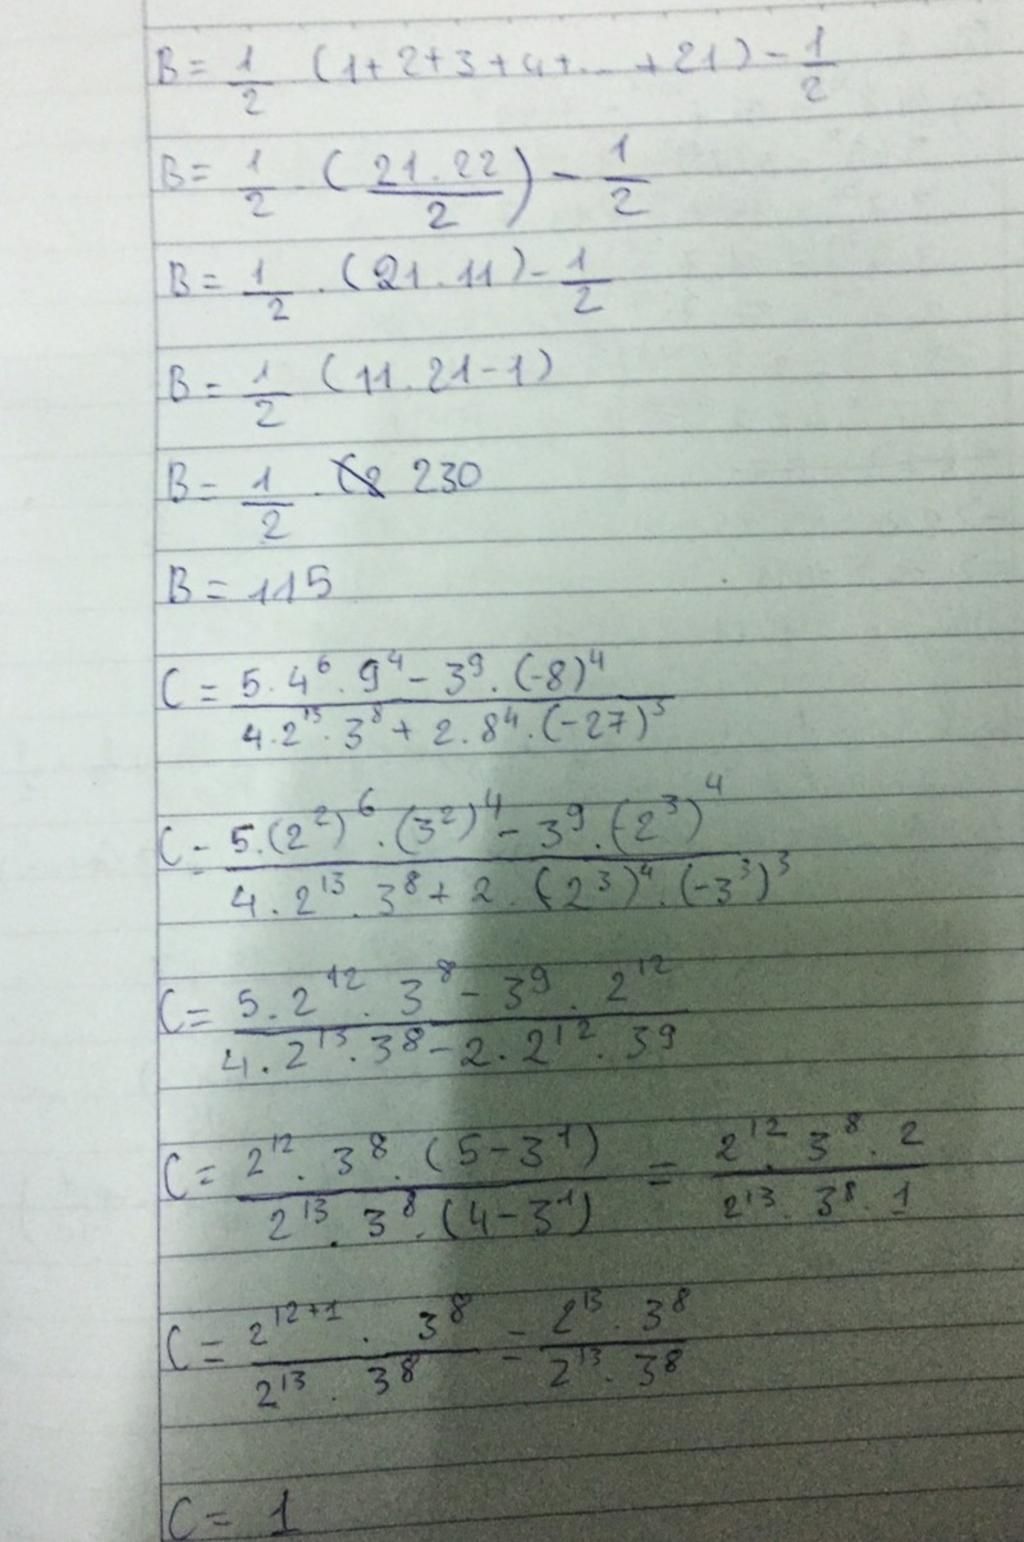 B = 1/2 (1+2+3+4+...+21) - 1/2
B = 1/2 . (21.22/2) - 1/2
B = 1/2 . (21.11) - 1/2
B = 1/2 (11.21-1)
B = 1/2 . 230
B = 115
C = 5.4^6.9^4 - 3^9.(-8)^4 / 4.2^13.3^8 + 2.8^4.(-27)^3
C = 5.(2^2)^6.(3^2)^4 - 3^9.(-2^3)^4 / 4.2^13.3^8 + 2.(2^3)^4.(-3^3)^3
C = 5.2^12.3^8 - 3^9.2^12 / 4.2^13.3^8 - 2.2^12.39
C = 2^12.3^8.(5-3^1) / 2^13.3^8.(4-3^1) = 2^12.3^8.2 / 2^13.3^8.1
C = 2^12+1 . 3^8 / 2^13 . 3^8 = 2^13.3^8 / 2^13.3^8
C = 1